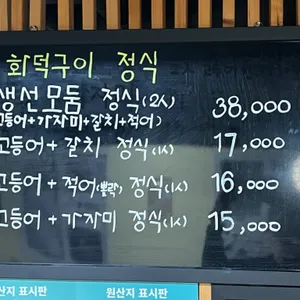 화덕구이 정식
생선모둠 정식(2人) 38,000
고등어+가자미+갈치+적어)
고등어+갈치 정식(1人) 17,000
고등어+적어(볼락) 정식(1人) 16,000
고등어+가자미 정식(1人) 15,000
산지 표시판
원산지 표시판